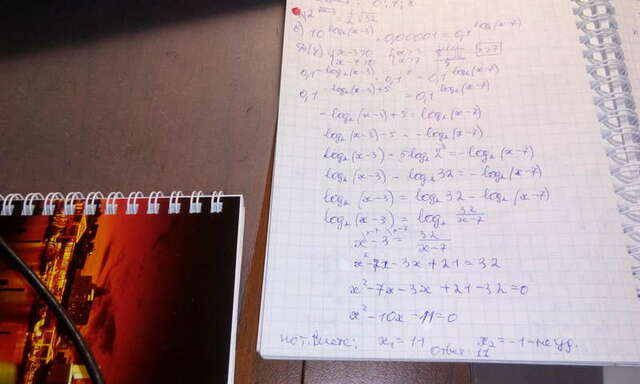 в) 10^(log₂(x-3)) · 0,00001 = 0,1^(log₂(x-7))
{x-3>0 {x>3 x>7
{x-7>0 {x>7
0,1^(-log₂(x-3)) · 0,1⁵ = 0,1^(log₂(x-7))
0,1^(-log₂(x-3)+5) = 0,1^(log₂(x-7))
-log₂(x-3)+5 = log₂(x-7)
log₂(x-3)-5 = -log₂(x-7)
log₂(x-3) - 5log₂2 = -log₂(x-7)
log₂(x-3) - log₂32 = -log₂(x-7)
log₂(x-3) = log₂32 - log₂(x-7)
log₂(x-3) = log₂ 32/(x-7)
x-3 = 32/(x-7)
x²-7x-3x+21=32
x²-7x-3x+21-32=0
x²-10x-11=0
по т. Виета: x₁=11 x₂=-1-не уд.
Ответ: 11